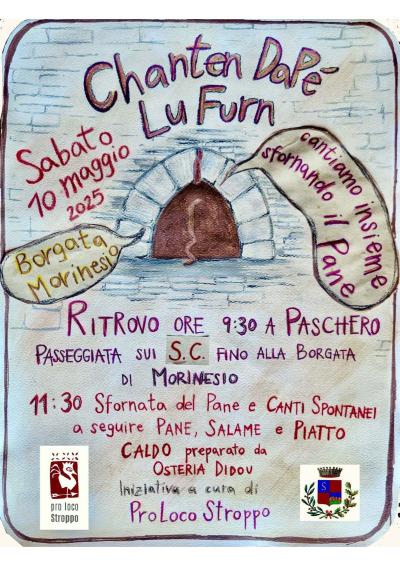 Chanten DaPé
Lu Furn
Sabato
10 maggio
2025
cantiamo insieme
sfornando il Pane
Borgata
Morinesio
RITROVO ORE 9:30 A PASCHERO
PASSEGGIATA SUI S.C. FINO ALLA BORGATA
DI MORINESIO
11:30 Sfornata del Pane e CANTI SPONTANEI
a seguire PANE, SALAME e PIATTO
CALDO preparato da
OSTERIA DIDOU
Iniziativa a cura di
Pro Loco Stroppo
pro loco
Stroppo
S